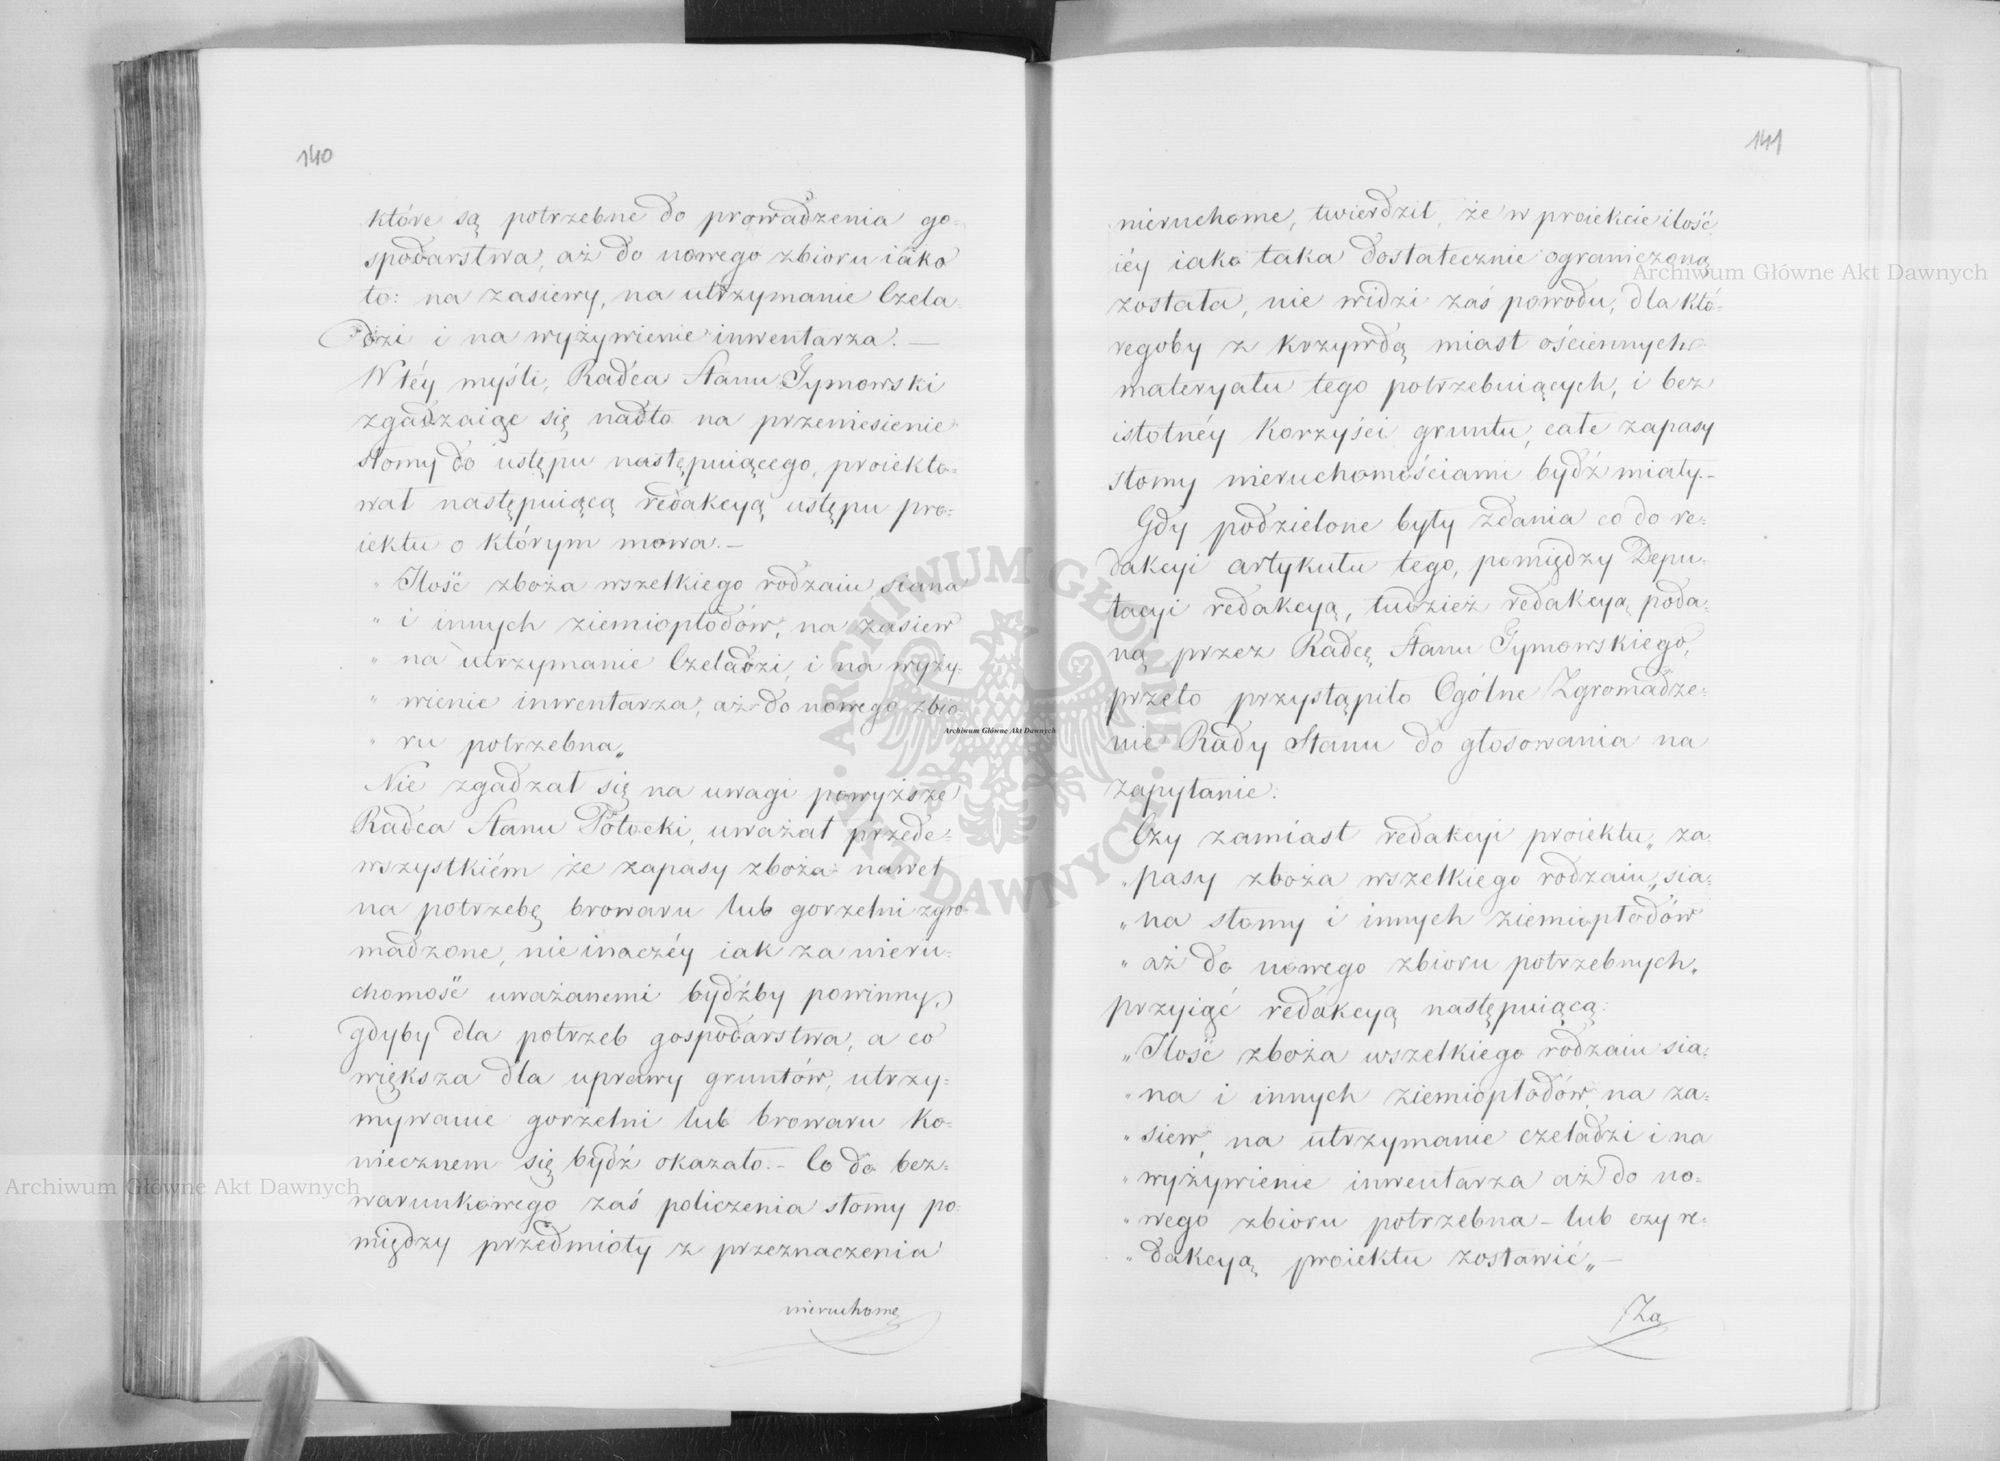 140
które są potrzebne do prowadzenia go=
spodarstwa, aż do nowego zbioru iako
to: na zasiewy, na utrzymanie Czela=
dzi i na wyżywienie inwentarza. —
W téy myśli, Radca Stanu Tymowski
zgadzaiąc się nadto na przeniesienie
słomy do ustępu następuiącego, proiekto=
wał następuiącą redakcyą ustępu pro=
iektu o którym mowa. —
„ Ilość zboża wszelkiego rodzaiu, siana
„ i innych ziemiopłodów, na zasiew
„ na utrzymanie Czeladzi, i na wyży=
„ wienie inwentarza, aż do nowego zbio=
„ ru potrzebna„
Nie zgadzał się na uwagi powyższe
Radca Stanu Potocki, uważał przede=
wszystkiém że zapasy zboża nawet
na potrzebę browaru lub gorzelni zgro=
madzone, nie inaczéy iak za nieru=
chomość uważanemi bydźby powinny,
gdyby dla potrzeb gospodarstwa, a co
większa dla uprawy gruntów, utrzy=
mywanie gorzelni lub browaru ko=
niecznem się bydź okazało. — Co do bez=
warunkowego zaś policzenia słomy po=
między przedmioty z przeznaczenia
nieruchome
141
nieruchome, twierdził, że w proiekcie ilość
iéy iako taka dostatecznie ograniczoną
została, nie widzi zaś powodu, dla któ=
regoby z krzywdą miast ościennych
materyału tego potrzebuiących, i bez
istotnéy korzyści gruntu, całe zapasy
słomy nieruchomościami bydź miały. —
Gdy podzielone były zdania co do re=
dakcyi artykułu tego, pomiędzy Depu=
tacyi redakcyą, tudzież redakcyą poda=
ną przez Radcę Stanu Tymowskiego,
przeto przystąpiło Ogólne Zgromadze=
nie Rady Stanu do głosowania na
zapytanie:
Czy zamiast redakcyi proiektu„ za=
„ pasy zboża wszelkiego rodzaiu, sia=
„ na słomy i innych ziemiopłodów
„ aż do nowego zbioru potrzebnych„
przyiąć redakcyą następuiącą:
„ Ilość zboża wszelkiego rodzaiu sia=
„ na i innych ziemiopłodów na za=
„ siew, na utrzymanie czeladzi i na
„ wyżywienie inwentarza aż do no=
„ wego zbioru potrzebna — lub czy re=
„ dakcyą proiektu zostawić„ —
Za
Archiwum Główne Akt Dawnych
Archiwum Główne Akt Dawnych
Archiwum Główne Akt Dawnych
ARCHIWUM GŁÓWNE
AKT DAWNYCH